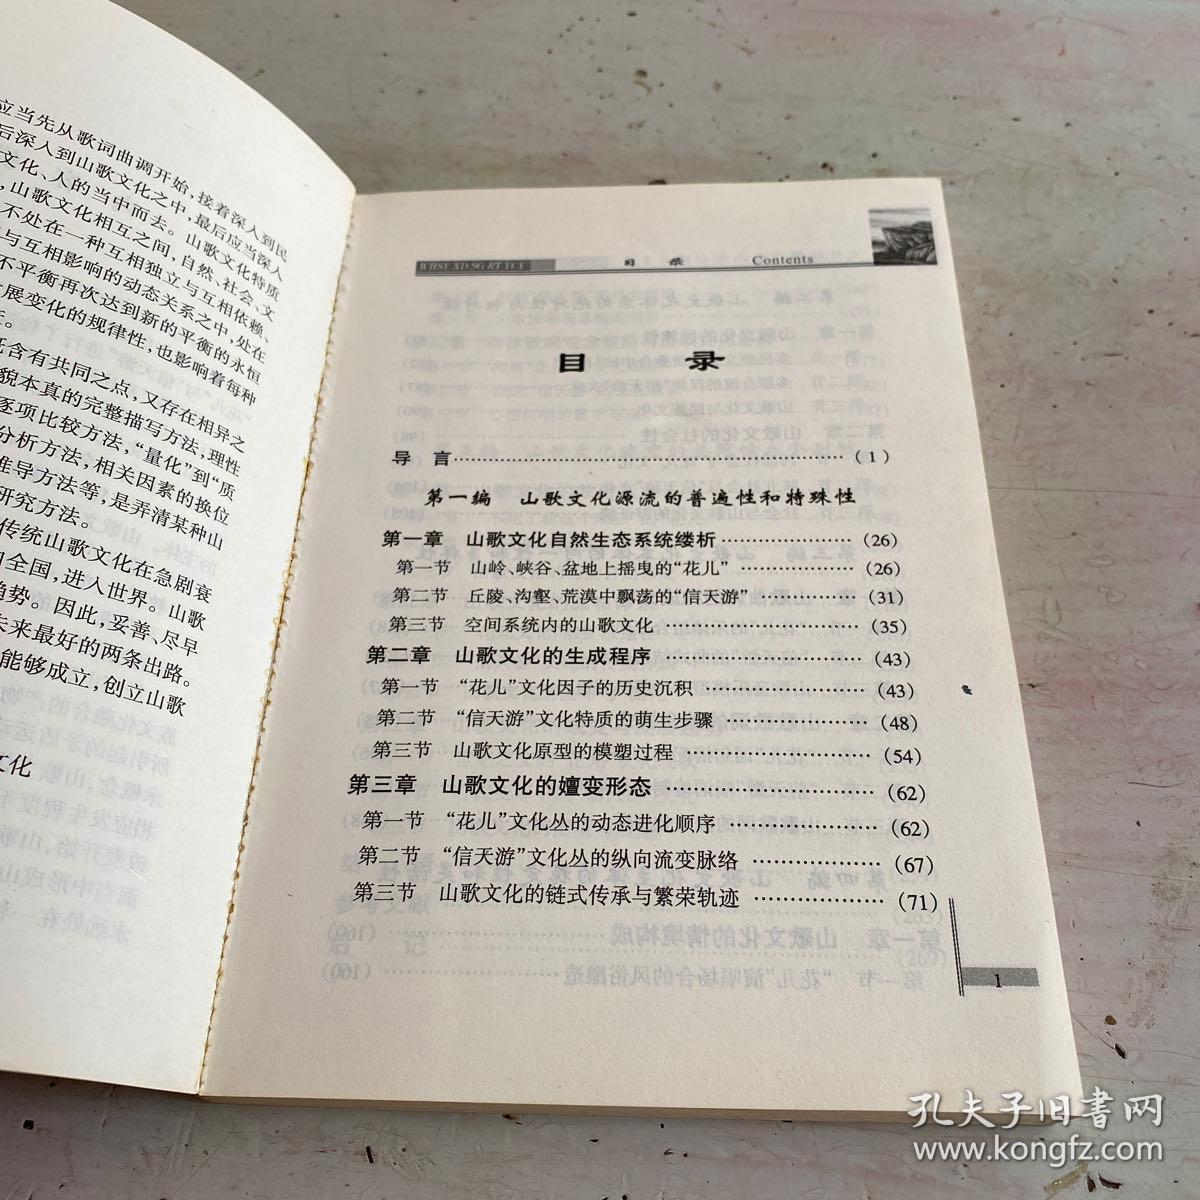 应当先从歌词曲调开始,接着深入到民
后深入到山歌文化之中,最后应当深入
文化、人的当中而去。山歌文化特质
,山歌文化相互之间,自然、社会、文
不处在一种互相独立与互相依赖、
与互相影响的动态关系之中,处在
不平衡再次达到新的平衡的永恒
展变化的规律性,也影响着每种
含有共同之点,又存在相异之
貌本真的完整描写方法,理性
逐项比较方法,“量化”到“质
分析方法,相关因素的换位
推导方法等,是弄清某种山
研究方法。
传统山歌文化在急剧衰
全国,进入世界。山歌
趋势。因此,妥善、尽早
未来最好的两条出路。
能够成立,创立山歌
文化
目 录 Contents
目 录
导 言 (1)
第一编 山歌文化源流的普遍性和特殊性
第一章 山歌文化自然生态系统缕析 (26)
第一节 山岭、峡谷、盆地上摇曳的“花儿” (26)
第二节 丘陵、沟壑、荒漠中飘荡的“信天游” (31)
第三节 空间系统内的山歌文化 (35)
第二章 山歌文化的生成程序 (43)
第一节 “花儿”文化因子的历史沉积 (43)
第二节 “信天游”文化特质的萌生步骤 (48)
第三节 山歌文化原型的模塑过程 (54)
第三章 山歌文化的嬗变形态 (62)
第一节 “花儿”文化丛的动态进化顺序 (62)
第二节 “信天游”文化丛的纵向流变脉络 (67)
第三节 山歌文化的链式传承与繁荣轨迹 (71)
1
孔夫子旧书网
www.kongfz.com